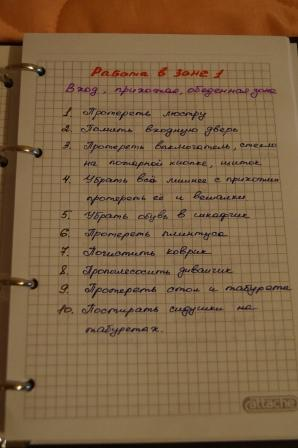 Работа в зоне 1
Вход, прихожая, обеденная зона
1. Протереть люстру
2. Помыть входную дверь
3. Протереть выключатель, стекло
на пожарной кнопке, щиток
4. Убрать всё лишнее с прихожки
протереть её и вешалки
5. Убрать обувь в шкафчик
6. Протереть плинтуса
7. Почистить коврик
8. Пропылесосить диванчик
9. Протереть стол и табурета
10. Постирать сидушки на
табуретах.
attache